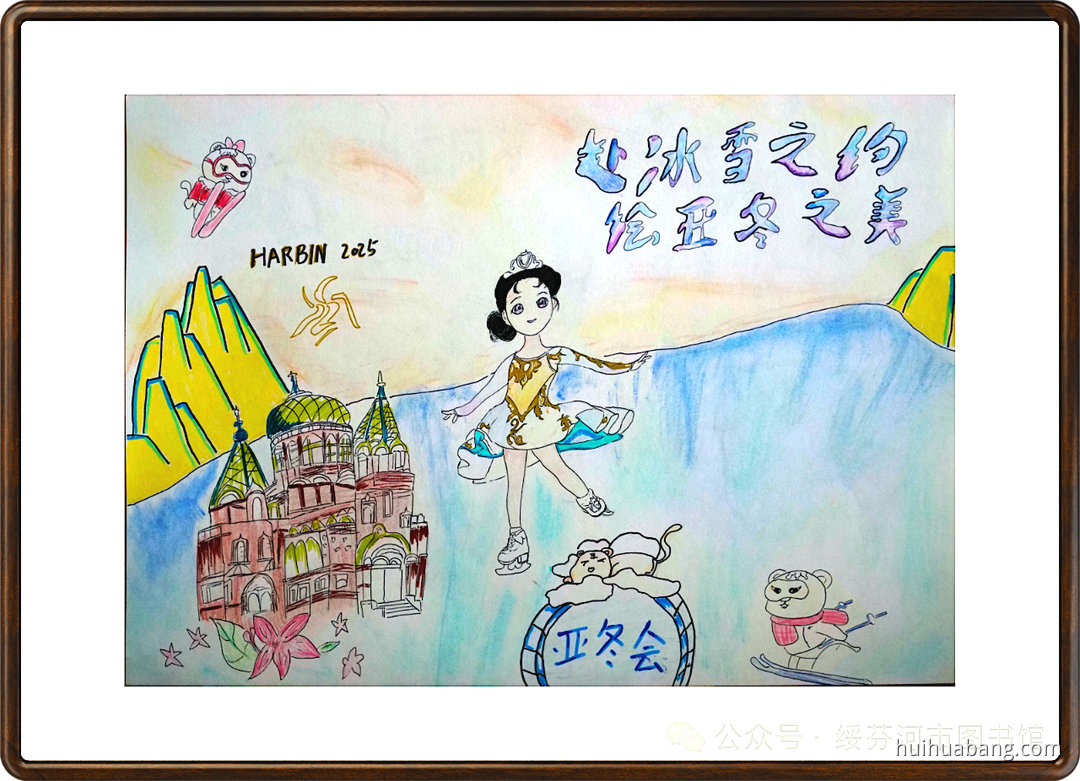 赴冰雪之约
绘亚冬之美
HARBIN 2025
亚冬会
公众号·绥芬河市图书馆
huihuabang.com